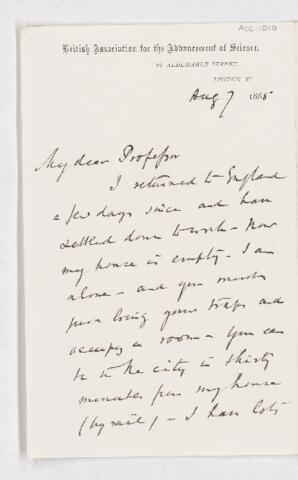 ACC-1010
British Association for the Advancement of Science.
22 ALBEMARLE STREET,
LONDON, W.
Aug 7 1885
My dear Professor
I returned to England
a few days since and have
settled down to work - Now
my house is empty - I am
alone - and you must
just bring your traps and
occupy a room - You can
be in the city in thirty
minutes from my house
(by rail) - I have lots